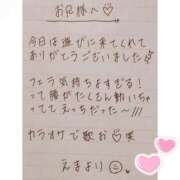 お兄様へ♡
今日は遊びに来てくれて
ありがとうございました
フェラ気持ちよすぎる!
って腰がたくさん動いちゃ
ってえっちだった〜///
カラオケで歌お♡笑
えまより